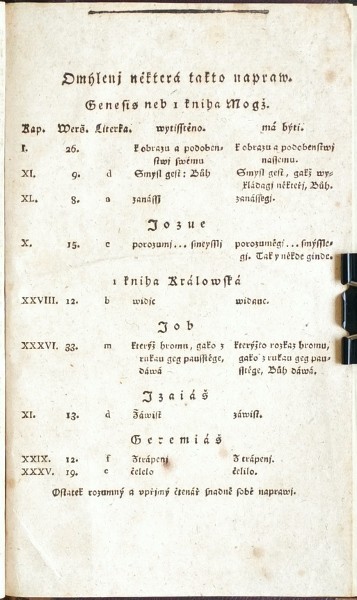 Omýlenj některá takto napraw.
Genesis neb 1 kniha Mogž.
Kap. Werš. Literka. wytisstěno. má býti.
I. 26. k obrazu a podoben- k obrazu a podobenstwj
stwj swému nassemu.
XI. 9. d Smysl gest: Bůh Smysl gest, gakž wy-
kládagj někteřj, Bůh.
XL. 8. a zanássj zanássegj.
Jozue
X. 15. c porozumj... smeyssljj porozumněgj... smeyssle-
gj. Tak y někde ginde.
1 kniha Králowská
XXVIII. 12. b widje widauc.
Job
XXXVI. 33. m kterýž hromu, gako z kterýžto rozkaz hromu,
rukau geg pausstěge, gako z rukau geg pau-
dáwá sstěge, Bůh dáwá.
Izaiáš
XI. 13. d Záwist záwist.
Geremiáš
XXIX. 12. f Ztrápenj Z trápenj.
XXXV. 19. c čelelo čelilo.
Ostatek rozumný a vpřjmý čtenář snadně sobě naprawj.